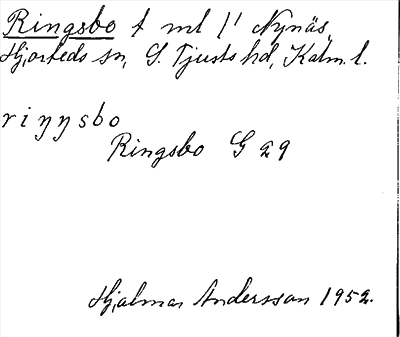 Ringsbo t ml 1/1 Nynäs,
Hjorteds sn, S. Tjusts hd, Kalm. l.
riŋŋsbo
Ringsbo G 29
Hjalmar Andersson 1952.